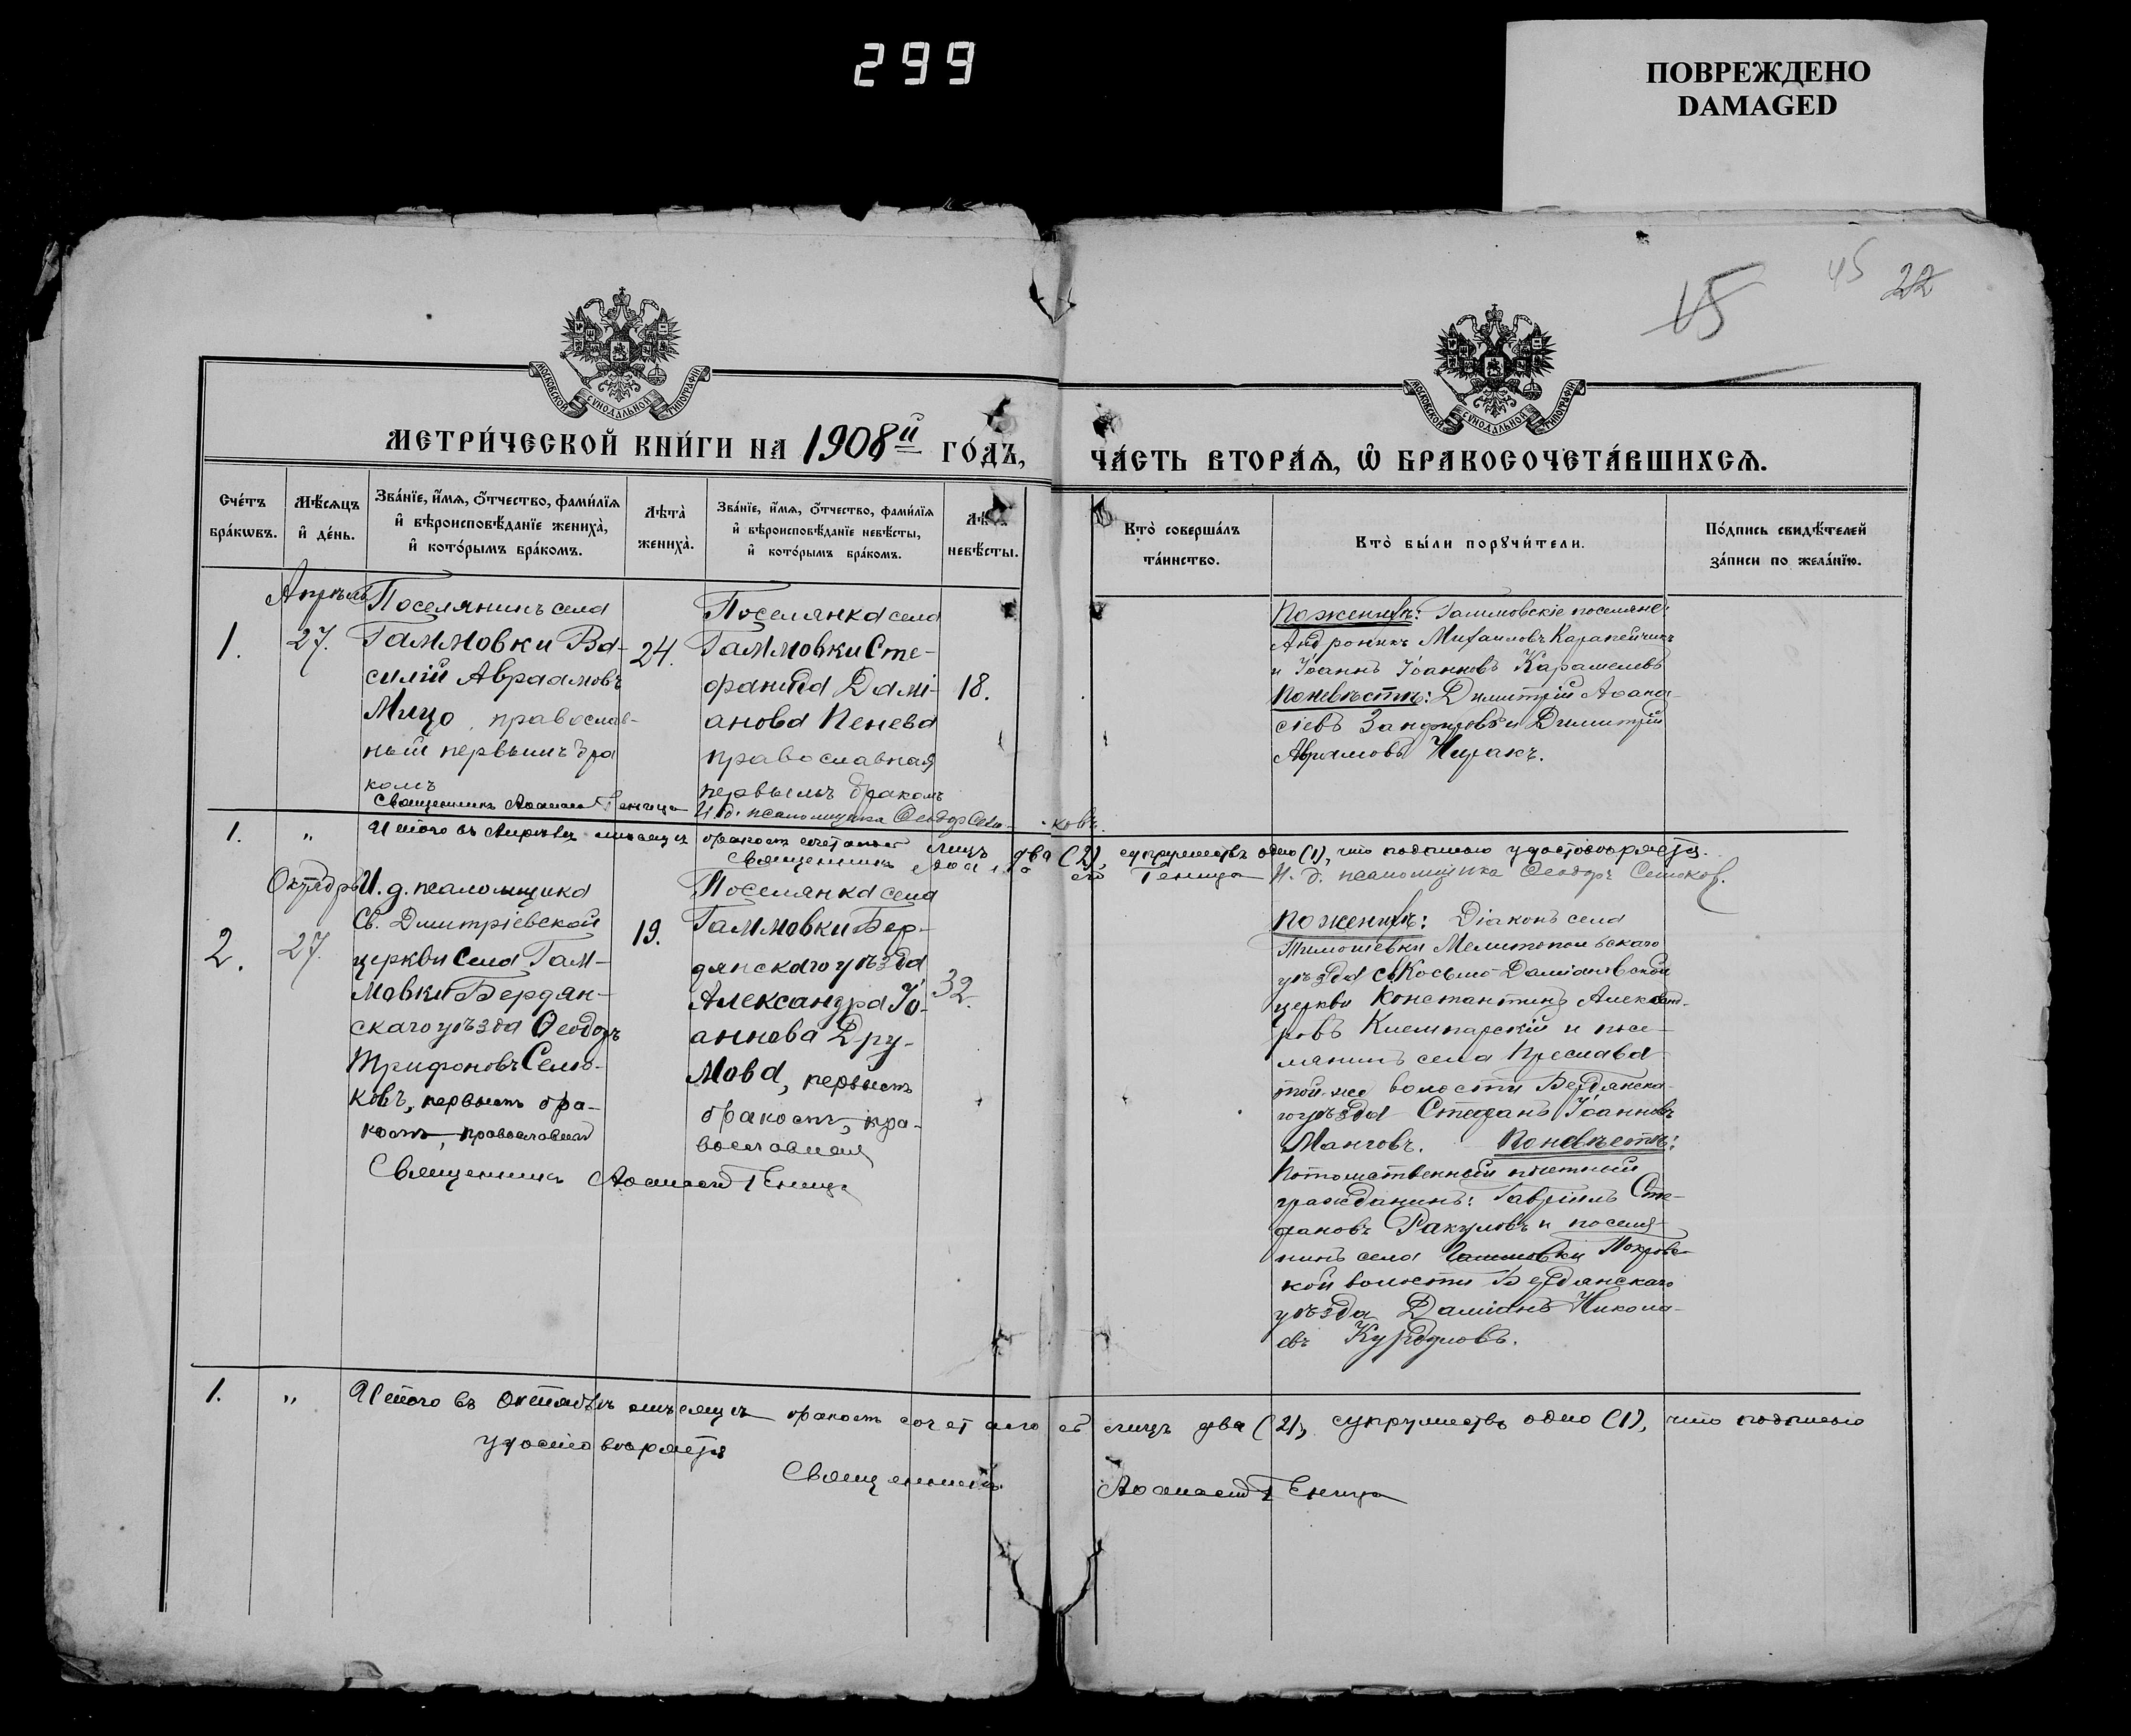 299
ПОВРЕЖДЕНО
DAMAGED
15
45
22
МОСКОВСКОЙ СУНОДАЛЬНОЙ ТИПОГРАФІИ
МОСКОВСКОЙ СУНОДАЛЬНОЙ ТИПОГРАФІИ
МЕТРИ́ЧЕСКОЙ КНИ́ГИ НА 1908й ГО́ДЪ,
ЧА́СТЬ ВТОРА́Я, Ѿ БРАКОСОЧЕТА́ВШИХСЯ.
Сче́тъ бра́кѡвъ.
Мѣ́сяцъ и҆ де́нь.
Зва́нїе, и҆́мя, ѻ҆́тчество, фами́лїя и҆ вѣроисповѣ́данїе жениха̀, и҆ кото́рымъ бра́комъ.
Лѣта̀ жениха̀.
Зва́нїе, и҆́мя, ѻ҆́тчество, фами́лїя и҆ вѣроисповѣ́данїе невѣ́сты, и҆ кото́рымъ бра́комъ.
невѣ́сты.
Кто̀ соверша́лъ та́инство.
Кто̀ бы́ли порꙋчи́тели.
По́дпись свидѣ́телей за́писи по жела́нїю.
1.
Апрѣль
27.
Поселянинъ села
Гаммовки Ва-
силій Авраамовъ
Мицо, православ-
ный первымъ бра
комъ
24.
Поселянка села
Гаммовки Сте-
фанида Дамі-
анова Пенева
православная
первымъ бракомъ
18.
По женихѣ: Гаммовскіе поселяне:
Андроникъ Михаиловъ
и Іоаннъ Іоанновъ
По невѣстѣ: Димитрій Аѳана-
сіевъ и Димитрій
Аврамовъ Чиракъ.
Священникъ Аѳанасій Геница
И. д. псаломщика Ѳеодоръ Семо-
ковъ.
1.
"
Итого въ Апрѣлѣ мѣсяцѣ бракомъ сочетано лицъ два (2), супружествъ одно (1), что подписью удостовѣряется.
Священникъ Геница И. д. псаломщика Ѳеодоръ Семоков.
2.
Октябрь
27.
И. д. псаломщика
Св. Димитріевской
церкви села Гам-
мовки Бердян-
скаго уѣзда Ѳеодоръ
Трифоновъ Семо-
ковъ, первымъ бра-
комъ, православный
19.
Поселянка села
Гаммовки Бер-
дянскаго уѣзда
Александра Іо-
аннова Дру-
мова, первымъ
бракомъ, пра-
вославная
32.
По женихѣ: Діаконъ села
Тимошевки Мелитопольскаго
уѣзда св. Косьмо-Даміановской
церкви Константинъ Александ-
ровъ и посе-
лянинъ села Преслава
той-же волости Бердянска-
го уѣзда Стефанъ Іоанновъ
Манговъ. По невѣстѣ:
Потомственный почетный
гражданинъ: Гавріилъ Сте-
фановъ Ракуловъ и поселя-
нинъ села Гаммовки Покровс-
кой волости Бердянскаго
уѣзда Даміанъ Никола-
евъ Курдумовъ.
Священникъ Аѳанасій Геница
1.
"
Итого въ Октябрѣ мѣсяцѣ бракомъ сочетано лицъ два (2), супружествъ одно (1), что подписью
удостовѣряется
Священникъ Аѳанасій Геница